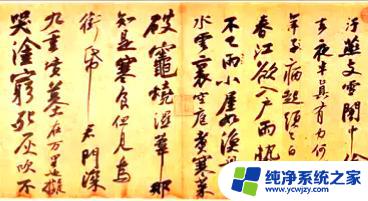 汙燕支雪闇中偷
去夜半真有力何
年子病起須已白
春江欲入戶雨勢
不已雨小屋如漁舟
水雲裏空庖煮寒菜
破竈燒濕葦那
知是寒食但見烏
銜帋君門深
九重墳墓在万里也擬
哭塗窮死灰吹不
纯净系统之家
www.ycwjzy.com